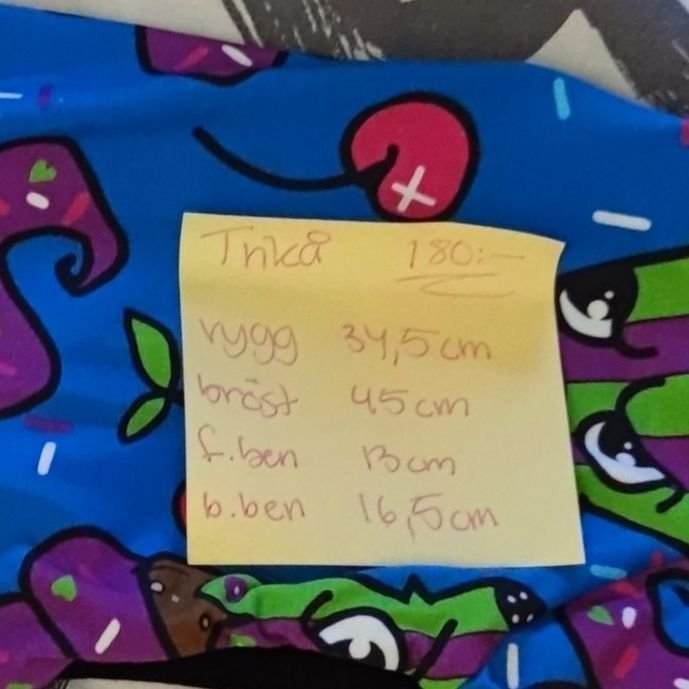 Trikå 180:-
rygg 34,5 cm
bröst 45 cm
f.ben 13 cm
b.ben 16,5 cm